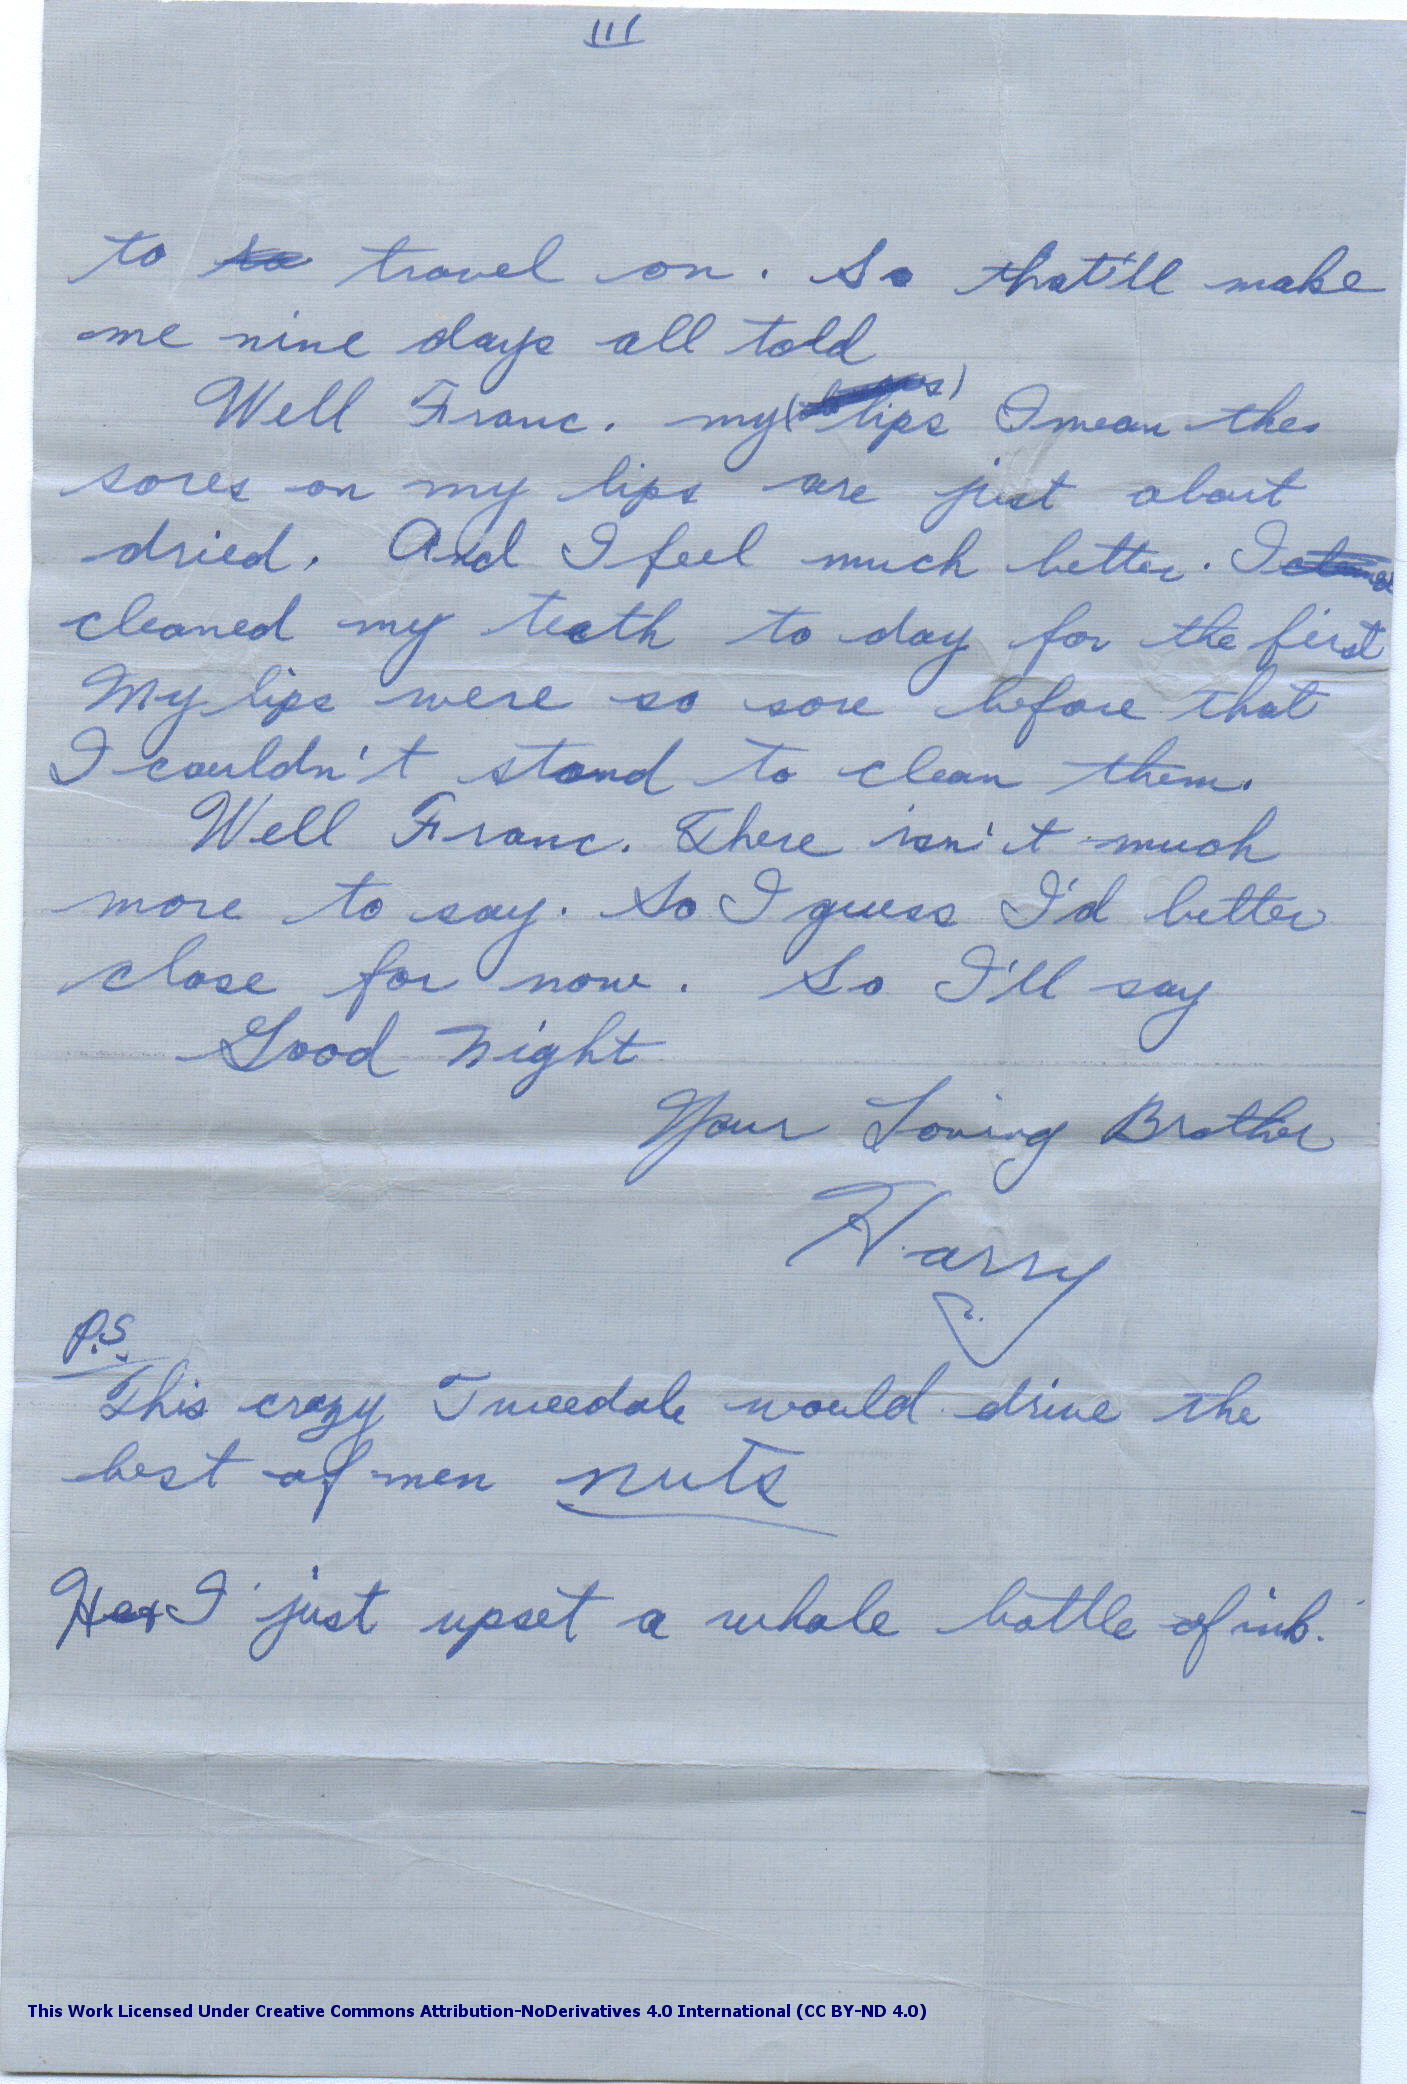 III
to travel on. So that'll make
me nine days all told
Well Franc. my lips I mean the
sores on my lips are just about
dried. And I feel much better. I
cleaned my teeth to day for the first
My lips were so sore before that
I couldn't stand to clean them.
Well Franc. There isn't much
more to say. So I guess I'd better
close for now. So I'll say
Good Night
Your Loving Brother
Harry
P.S.
This crazy Tweedale would drive the
best of men nuts
I just upset a whole bottle of ink.
This Work Licensed Under Creative Commons Attribution-NoDerivatives 4.0 International (CC BY-ND 4.0)